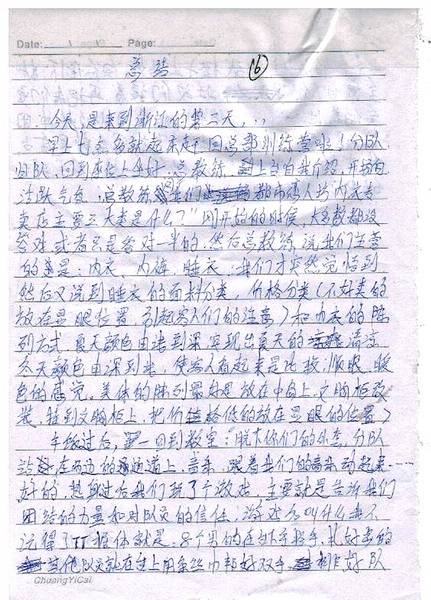 Date: Page:
总结 ⑥
今天是来到浙江的第二天...
早上七点多就起床赶回总部训练营啦！分队
归队，回到座位上坐好，总教练上台自我介绍，开场白
活跃气氛，总教练问我们都市丽人场内衣专
卖店主要三大类是什么？"刚开始的时候，大多数都没
答对或者只是答对一半的，然后总教练说我们主营
的就是：内衣、内裤、睡衣，我们才突然觉悟到
然后又说到睡衣的面料分类，价格分类（不好卖的
放在显眼位置，引起客人们的注意）和内衣的陈
列方式，夏天颜色由浅到深，实现出夏天的清凉
冬天颜色由深到浅，使客人看起来是比较顺眼，暖
色的感觉，美体的陈列最好是放在中岛上，文胸柜改
装，挂到文胸柜上，把价格低的放在显眼的位置）
午饭过后，第一回到教室"脱下你们的外套，分队
站在两边的通道上，音乐，跟着我们的音乐动起来
好的，热身过后我们玩了个游戏，主要就是告诉我们
团结的力量和对队员的信任，游戏名叫什么我不
记得了TT 具体就是：8个男的在台下手搭手，扎好马的
其他队员就在台上用丝巾绑好双手，排好队
ChuangYiCai